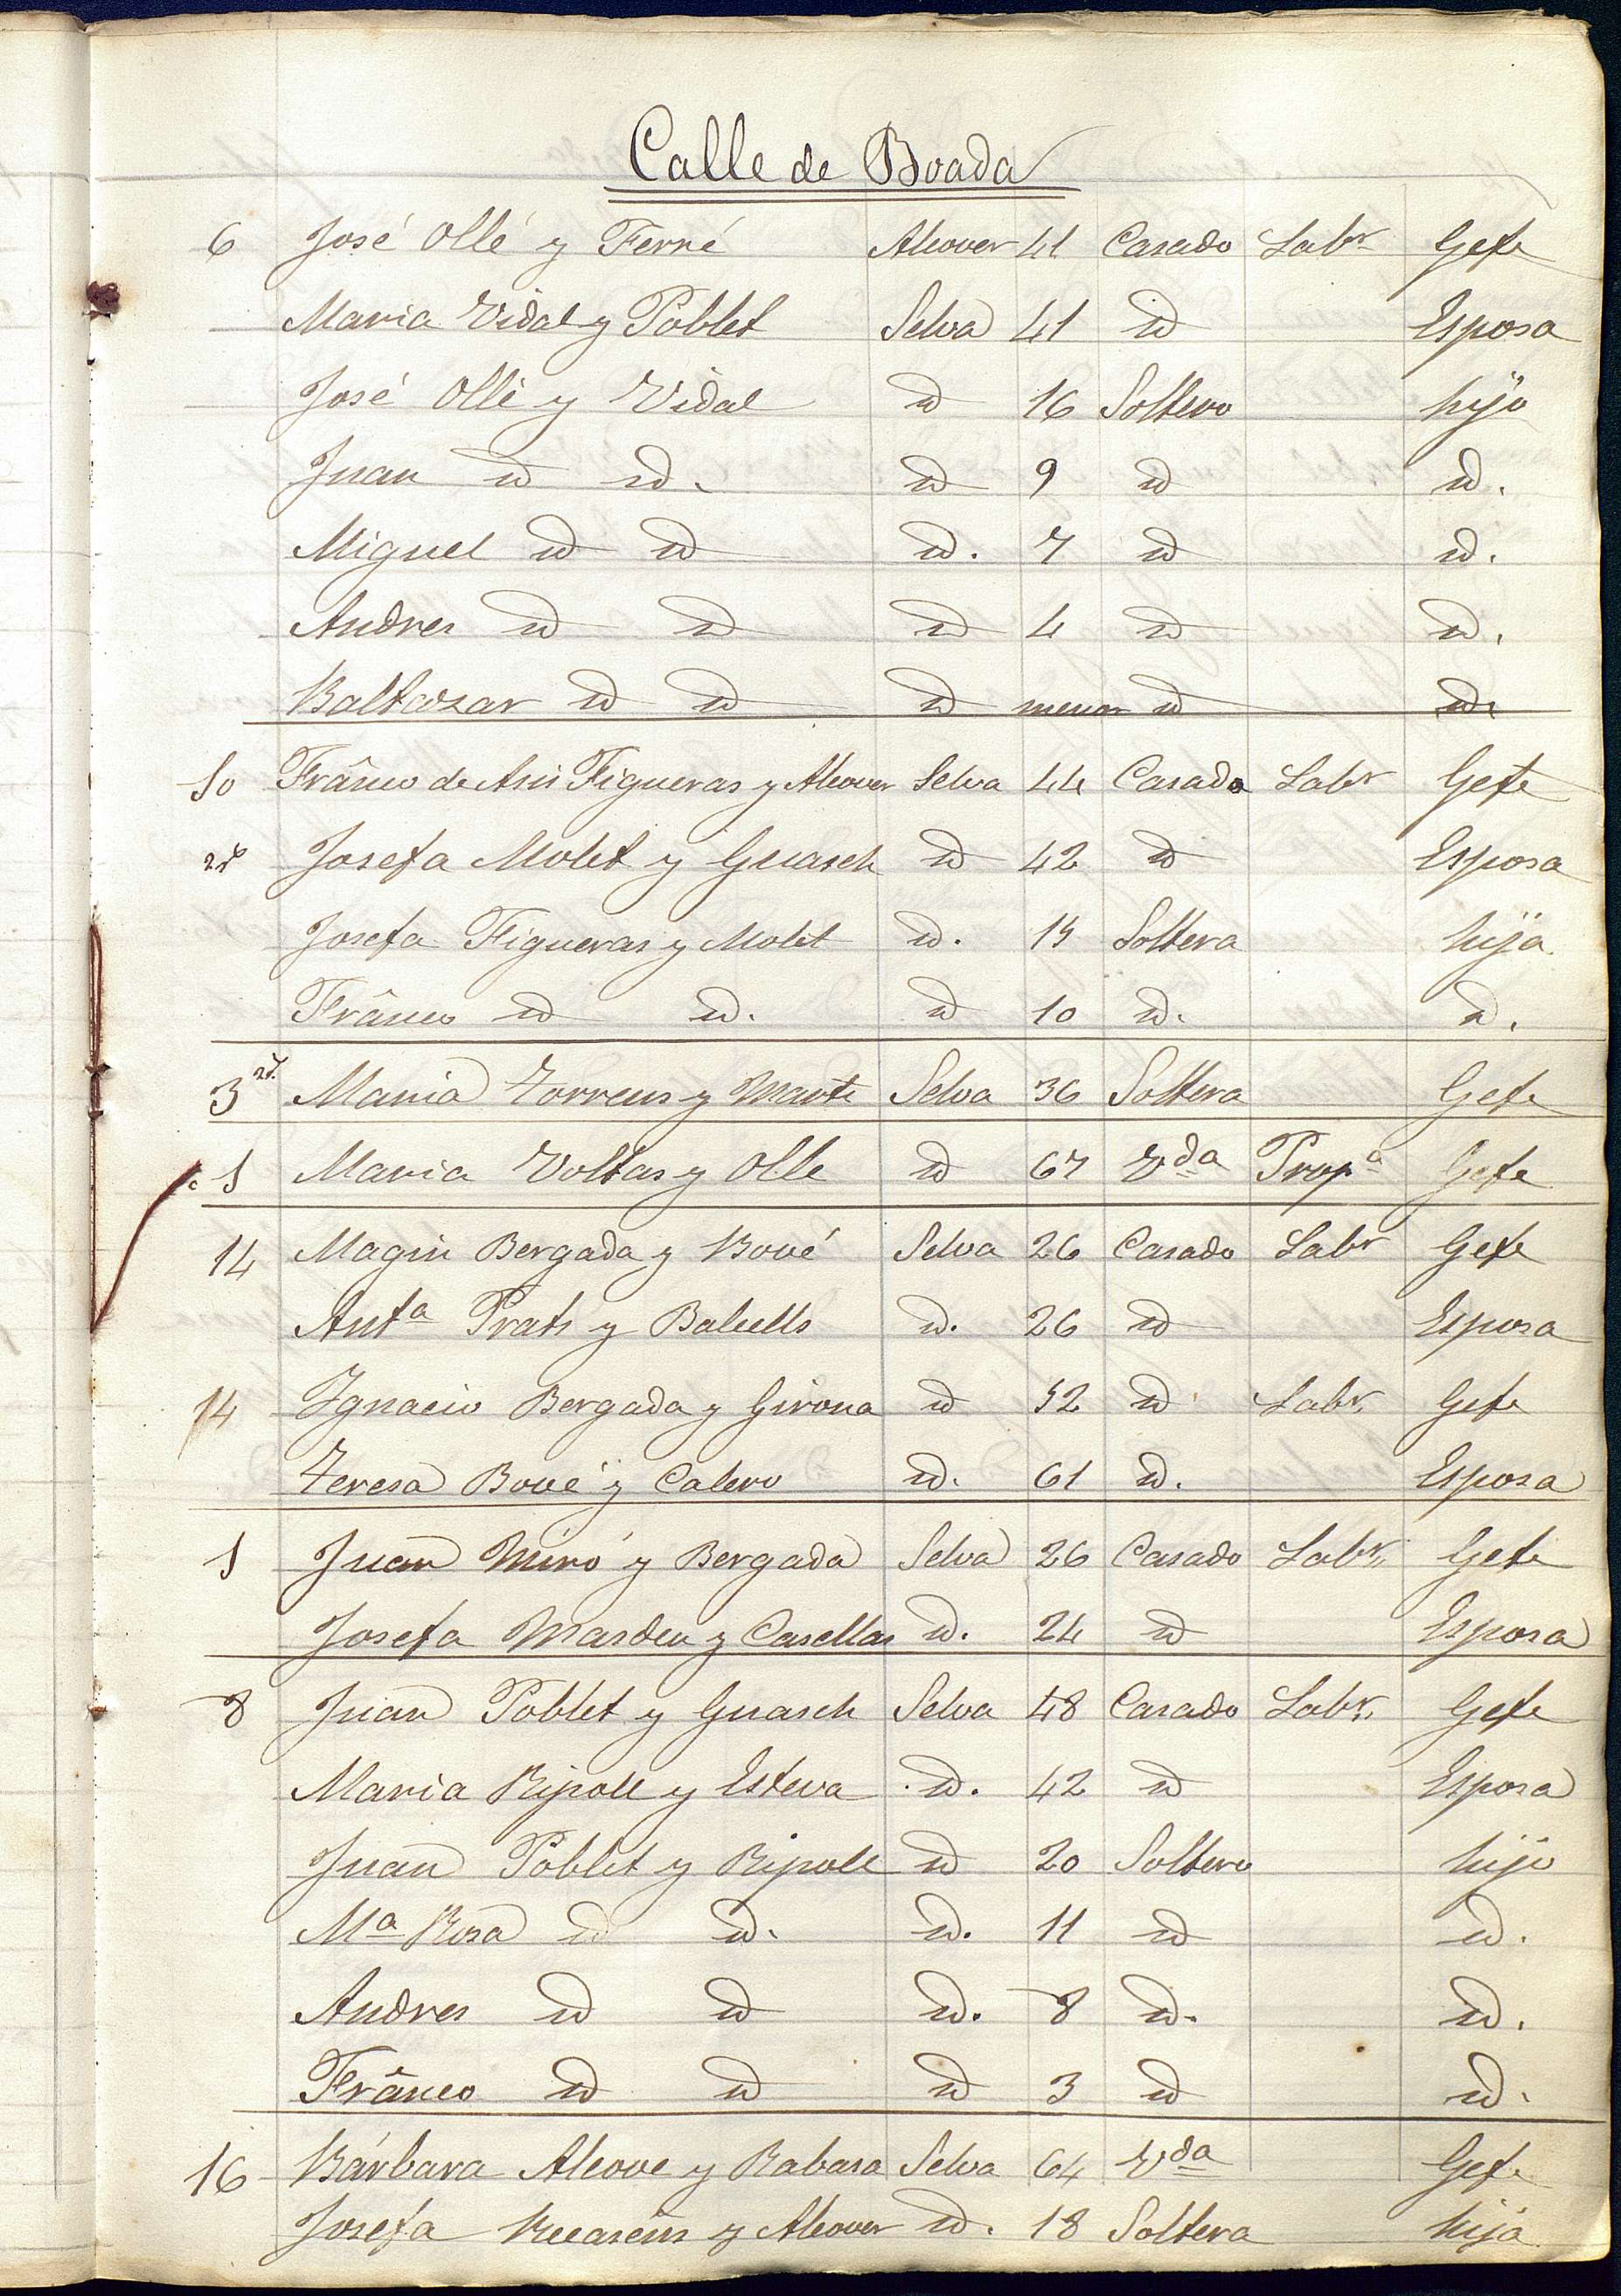 Calle de Boada
6 José Ollé y Ferré Alcover 41 Casado Labr Gefe
Maria Vidal y Poblet Selva 41 id Esposa
José Ollé y Vidal id 16 Soltero hijo
Juan id id. id 9 id id.
Miguel id id id. 7 id id.
Andres id id id 4 id id.
Baltazar id id id menor id id.
10 Frânco de Asis Figueras y Alcover Selva 44 Casado Labr Gefe
Josefa Molet y Guasch id 42 id Esposa
Josefa Figueras y Molet id. Soltera hija
Frânco id id. id 10 id. id.
3 Maria Torrens y Marti Selva 36 Soltera Gefe
1 Maria Voltas y Olle id 67 Vda Propa Gefe
14 Magin Bergada y Bové Selva 26 Casado Labr Gefe
Anta Prats y Balcells id. 26 id Esposa
14 Ignacio Bergada y Girona id 52 id Labr Gefe
Teresa Bové y Calero id. 61 id. Esposa
1 Juan Miró y Bergada Selva 26 Casado Labr Gefe
Josefa Masdeu y Casellas id. 24 id Esposa
8 Juan Poblet y Guasch Selva 48 Casado Labr Gefe
Maria Ripoll y Esteva id. 42 id Esposa
Juan Poblet y Ripoll id 20 Soltero hijo
Ma Rosa id id. id. 11 id id.
Andres id id id. 8 id. id.
Frânco id id id 3 id id.
16 Bárbara Alcove y Rabasa Selva 64 Vda Gefe
Josefa Recasens y Alcover id. 18 Soltera hija